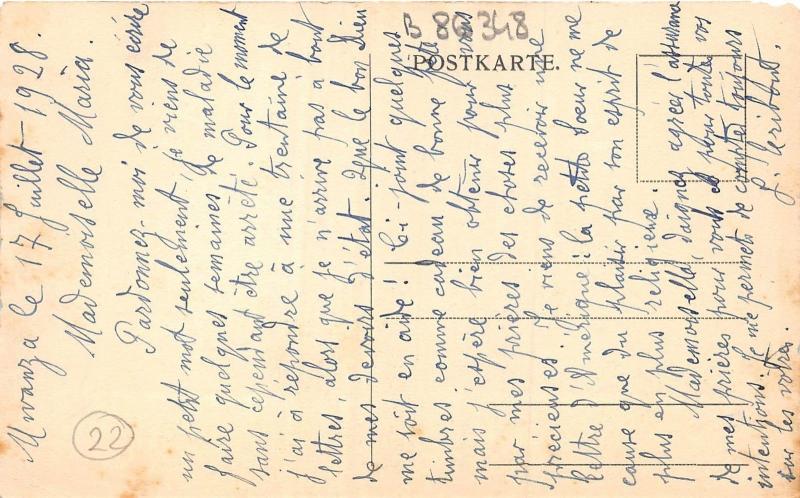 B 86348
POSTKARTE.
22
Mwanza le 17 Juillet 1928.
Mademoiselle Maria.
Pardonnez-moi de vous écrire
un petit mot seulement, je viens de
faire quelques semaines de maladie
sans cependant être arrêté. Pour le moment
j'ai à répondre à une trentaine de
lettres, alors que je n'arrive pas à bout
de mes devoirs d'état. Que le bon Dieu
me soit en aide! Ci-joint quelques
timbres comme cadeau de bonne fête
mais j'espère bien obtenir pour vous
par mes prières des choses plus
précieuses. Je viens de recevoir une
lettre d'Amérique: la petite soeur ne me
cause que du plaisir par son esprit de
plus en plus religieux.
Mademoiselle, daignez agréer l'assurance
de mes prières pour vous et pour toutes vos
intentions. Je me permets de compter toujours
sur les vôtres.